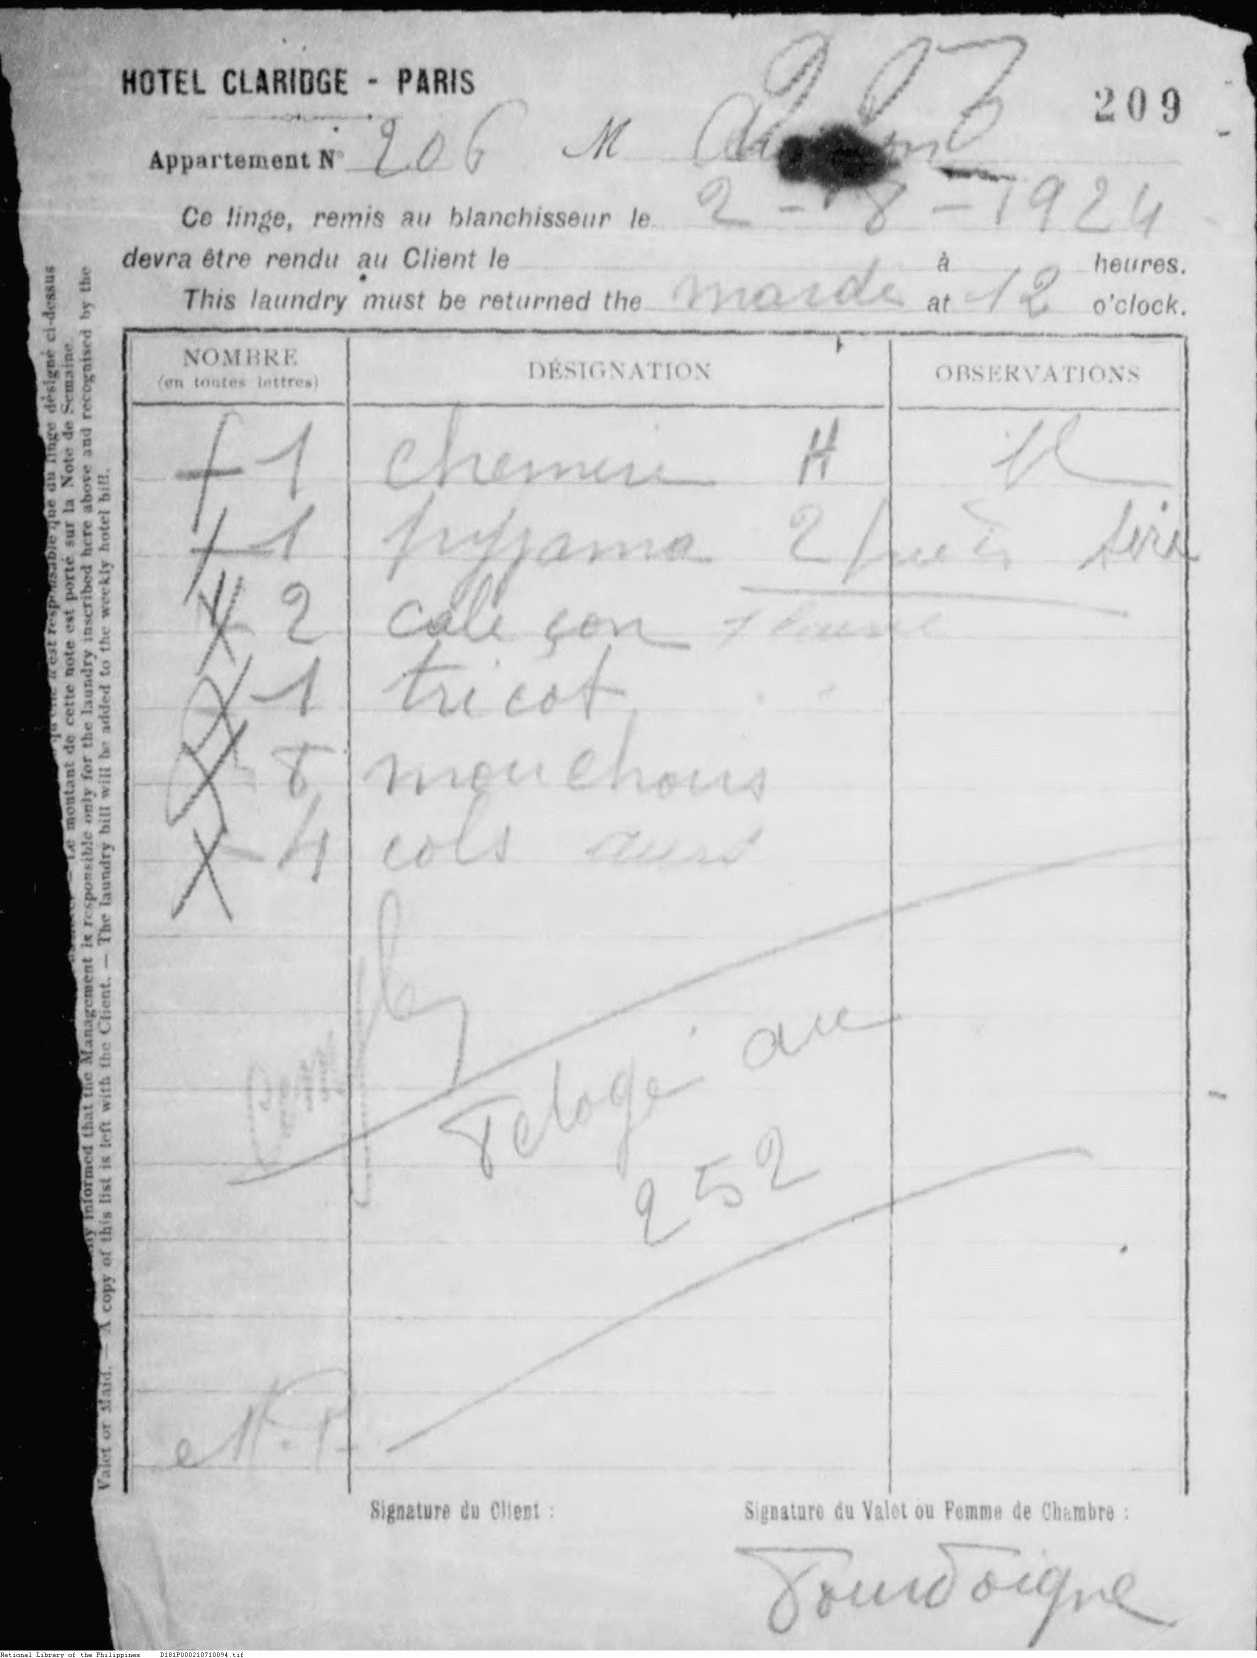 HOTEL CLARIDGE - PARIS
209
Appartement N° 206 M
Ce linge, remis au blanchisseur le 2 - 8 - 1924
devra être rendu au Client le à heures.
This laundry must be returned the mardi at 12 o'clock.
NOMBRE
(en toutes lettres)
DÉSIGNATION
OBSERVATIONS
1 chemise H
1 pyjama 2
2 caleçon
1 tricot
8 mouchoirs
4 cols
au
252
Signature du Client :
Signature du Valet ou Femme de Chambre :
est responsable que du linge désigné ci-dessus
Le montant de cette note est porté sur la Note de Semaine.
informed that the Management is responsible only for the laundry inscribed here above and recognised by the
Valet or Maid. — A copy of this list is left with the Client. — The laundry bill will be added to the weekly hotel bill.
National Library of the Philippines D181P000210710094.tif